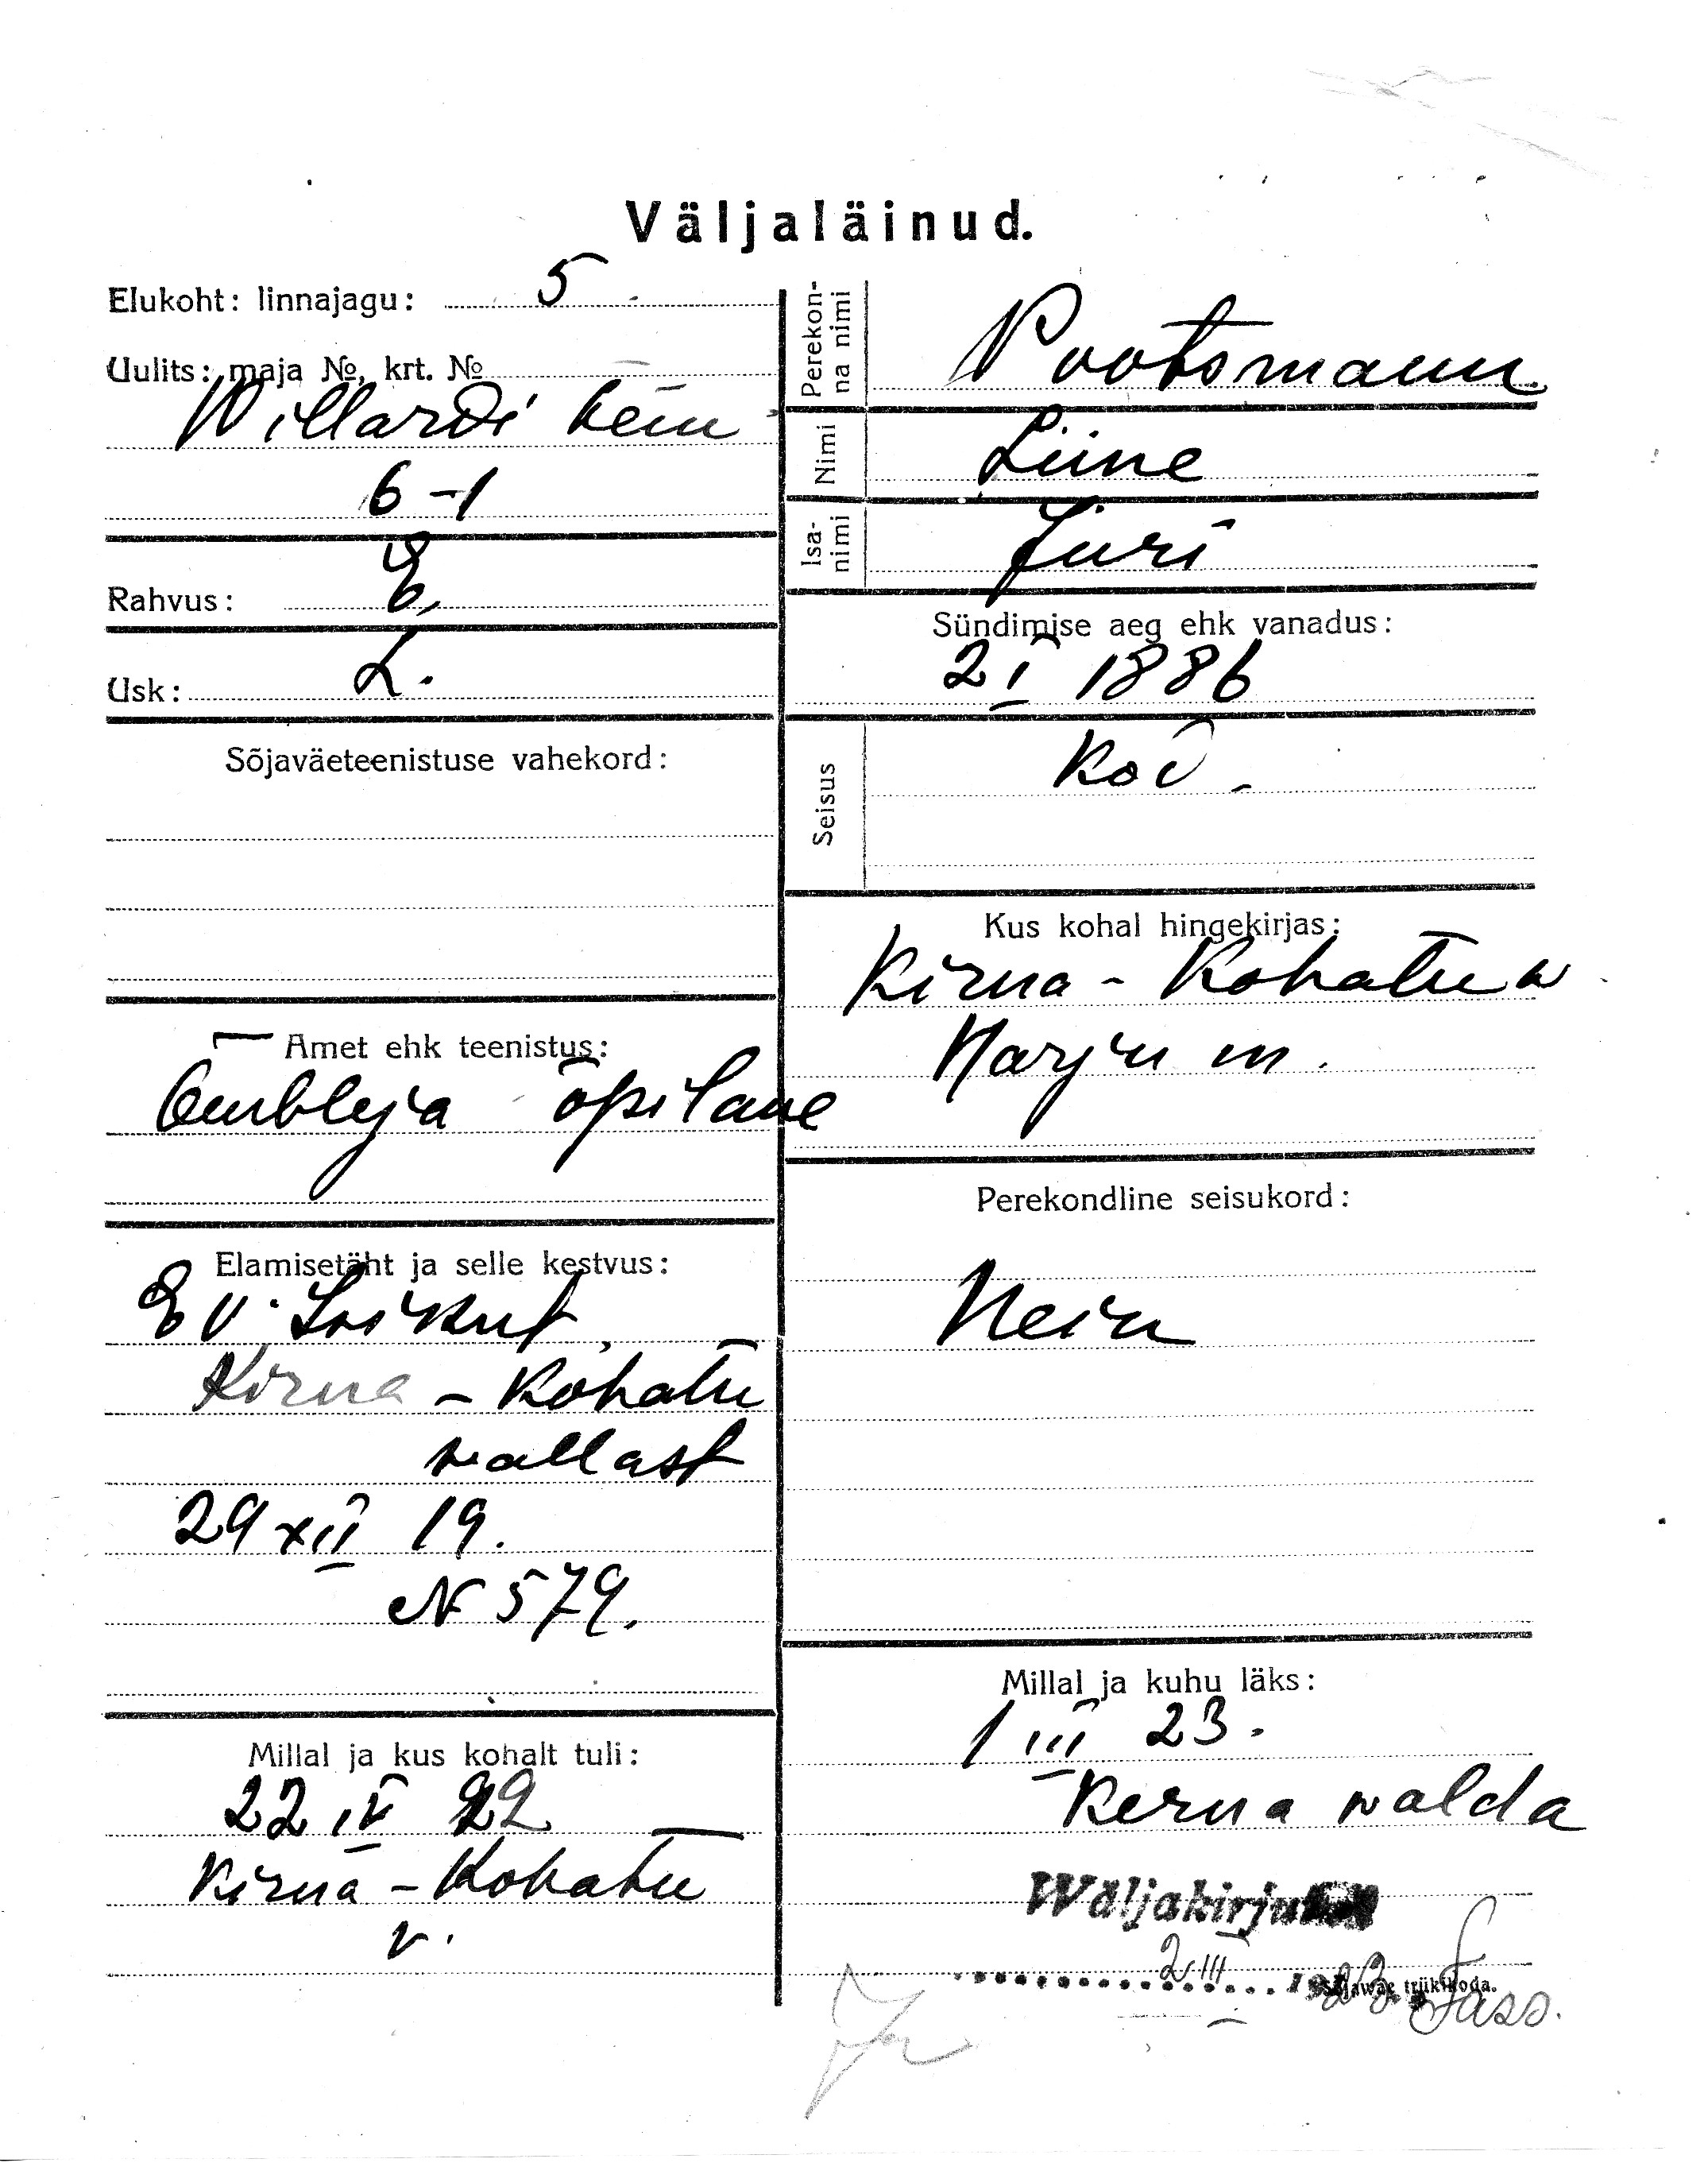 Väljaläinud.
Elukoht: linnajagu: 5.
Uulits: maja №, krt. №
Willardi
6-1
Rahvus: E.
Usk: L.
Sõjaväeteenistuse vahekord:
Amet ehk teenistus:
Õmbleja õpilane
Elamisetäht ja selle kestvus:
E V. Isikut.
Kirna - Kohatu
wallast
29 XII 19.
N 579.
Millal ja kus kohalt tuli:
22 IV 22
Kirna - Kohatu
v.
Perekonna nimi
Pootsmann
Nimi
Liine
Isanimi
Jüri
Sündimise aeg ehk vanadus:
2 I 1886
Seisus
Kod.
Kus kohal hingekirjas:
Kirna - Kohatu w
Harju m.
Perekondline seisukord:
Neiu
Millal ja kuhu läks:
1 III 23.
Kerna walda
2 III 1923.
Sõjawäe trükikoda.